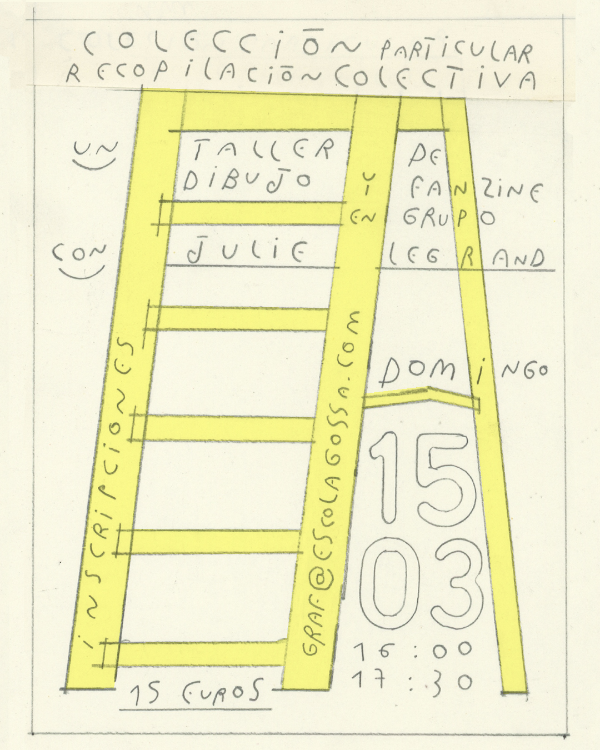 COLECCiÓN PARTiCULAR
RECOPiLACiÓN COLECTiVA
UN TALLER DE
DiBUJO Y FANZINE
EN GRUPO
CON JULiE LEGRAND
DOMiNGO
15
03
16:00
17:30
iNSCRiPCiONES
GRAF@ESCOLAGOSSA.COM
15 EUROS